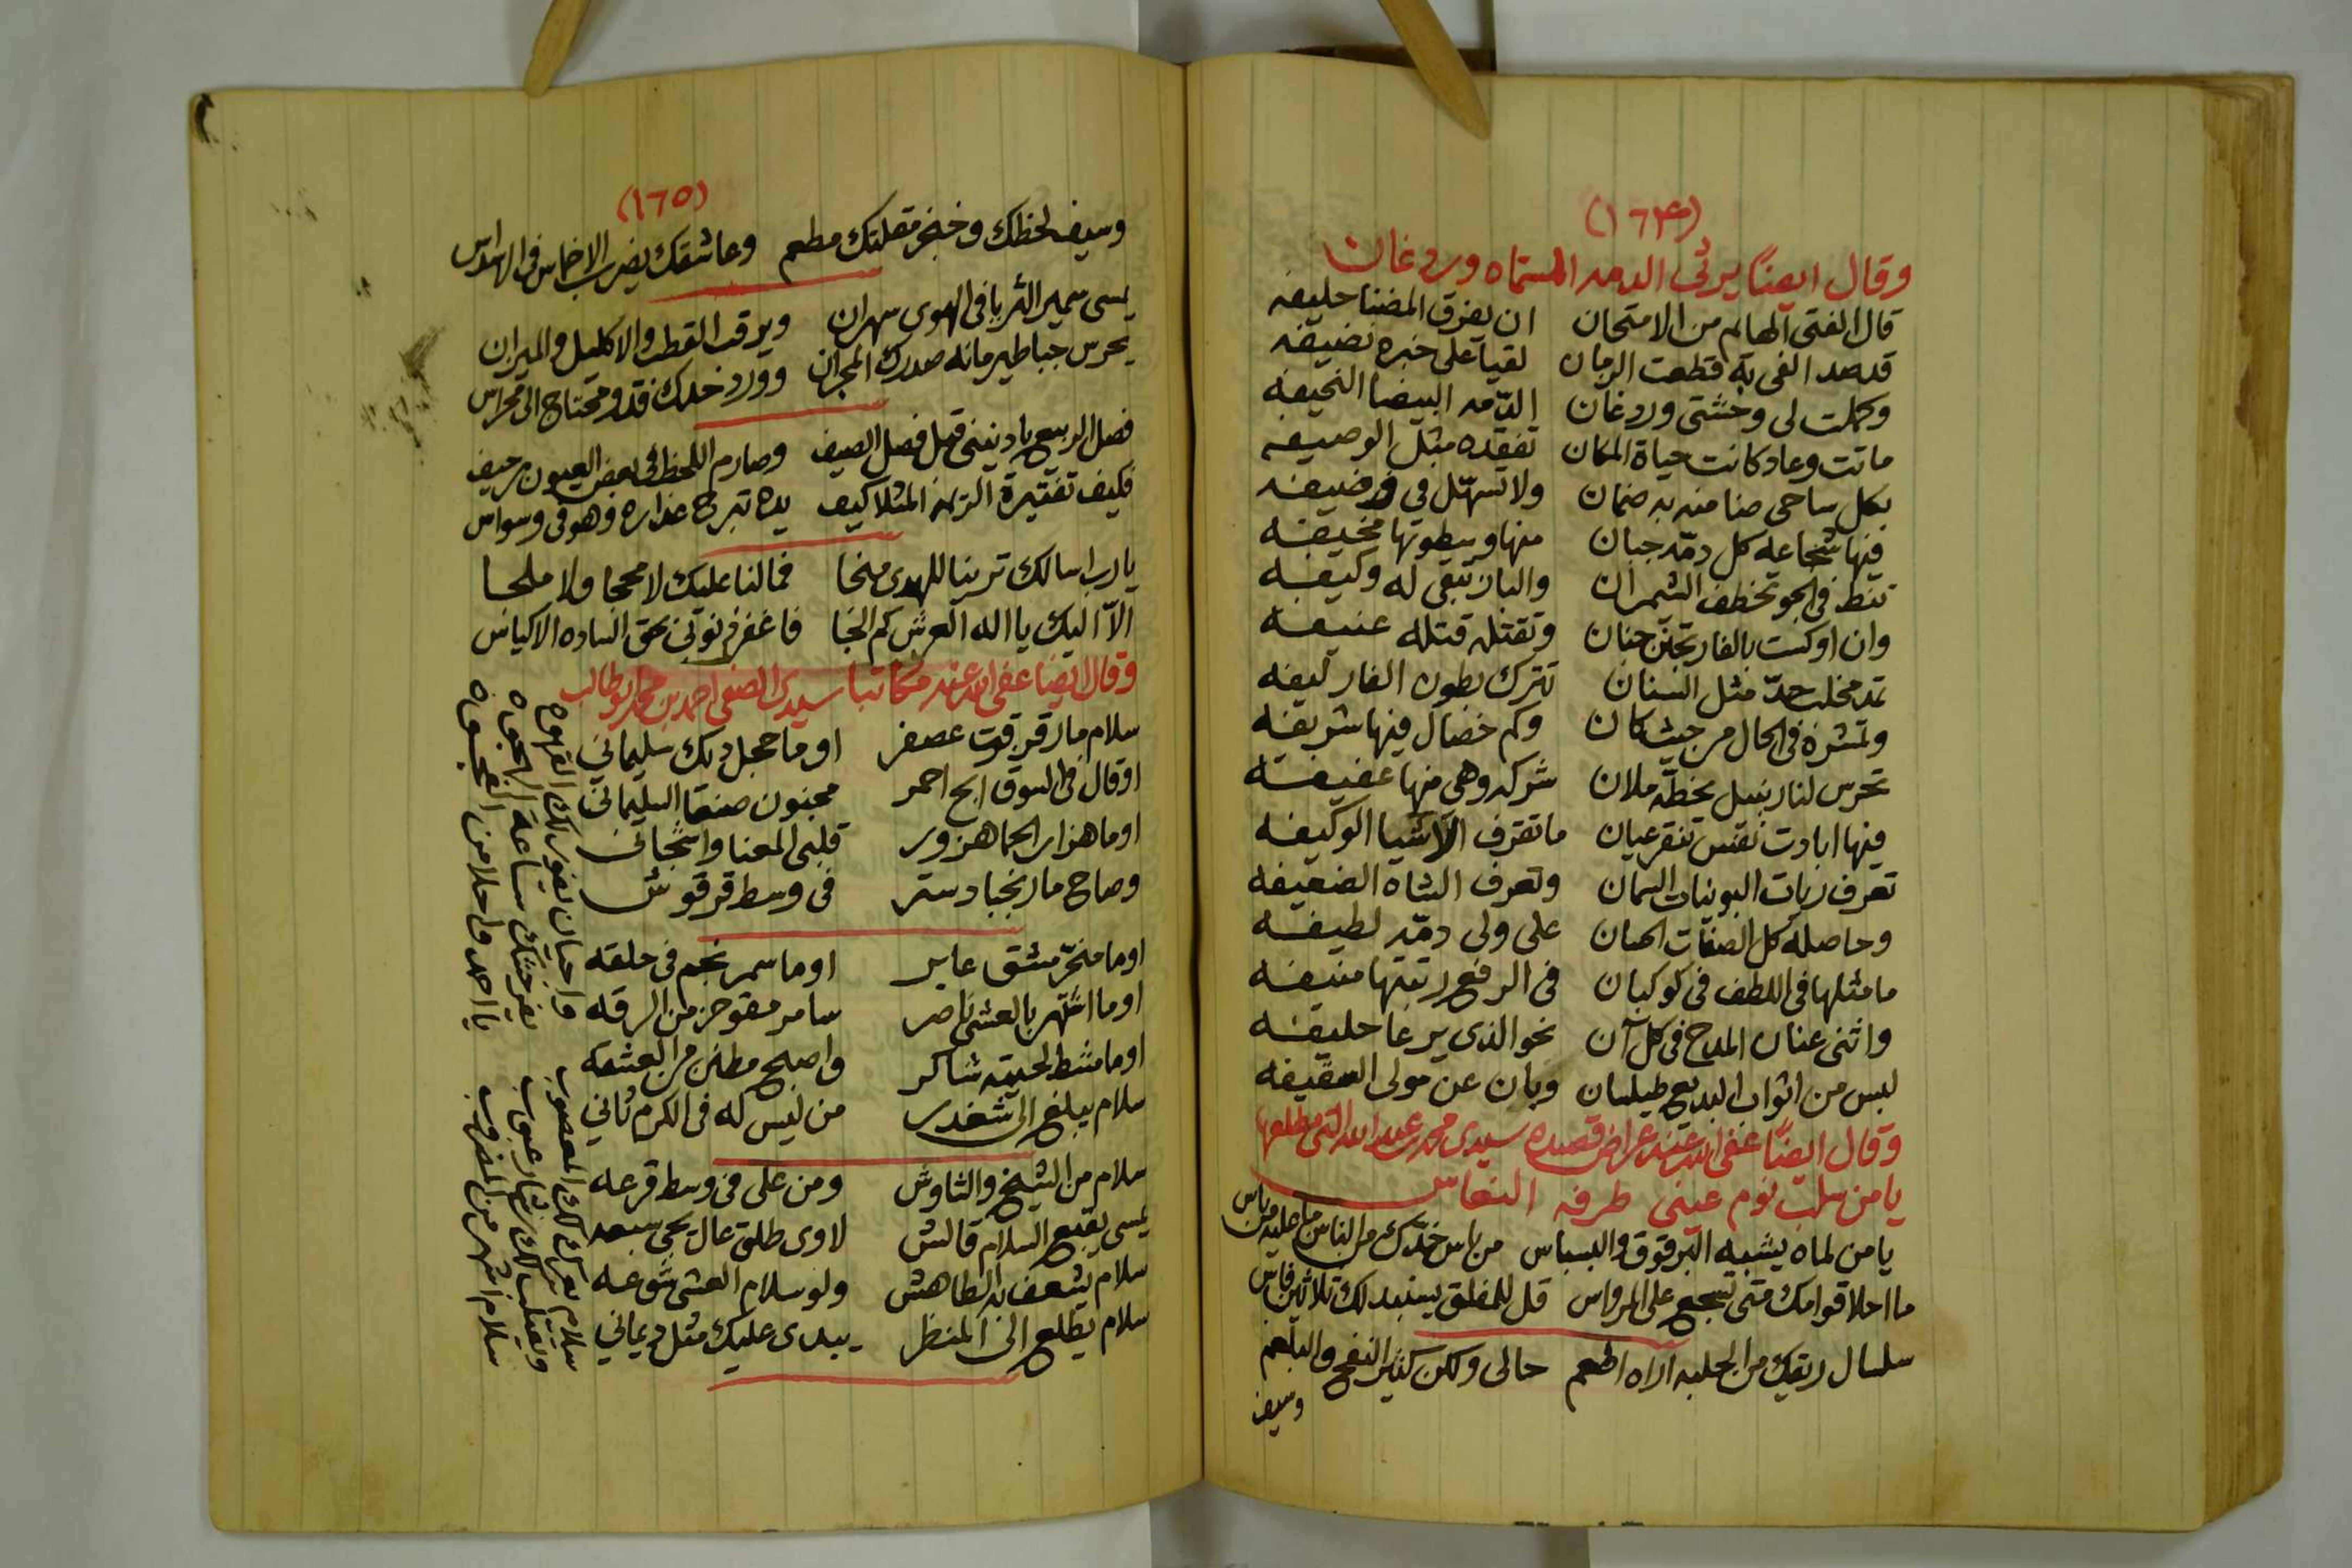 (١٦٤)
وقال ايضًا يرثي الدمه المسماه وردغان
قال الفتى الهايم من الامتحان ان يفرق المضنا حليفه
قد صد الفي به قطعت الزمان لقيا على خبره نضيفه
وكملت لى وحشتى وردغان الدّمه البيضا النحيفه
ماتت وعاد كانت حياة المكان تفقده مثل الوصيفه
بكل ساحي صنا منه به ضمان ولا تسهّل في
فيها شجاعه كل دمّه جبان منها وسطوتها مخيفه
تنط في الجو تخطف الشمران والبان تبقى له وكيفه
وان اوكست بالفار تجنن جنان وتقتله قتله عنيفه
تمد مخلب حدّ مثل السنان تترك بطون الفار ليفه
وتمشره في الحال من حيث كان وكم خصال فيها شريفه
تحرس لنا زنبيل بخطّه ملان شركه وهي منها عفيفه
فيها ابادت نقس تنقر عيان ما تقرف الآشيا الوكيفه
تعرف ربات البونيات السمان وتعرف الشاه الضعيفه
وحاصله كل الصفات الحسان على ولى دمّه لطيفه
ما مثلها في اللطف في كوكبان في الرفع رتبتها منيفه
واثنى عنان المدح في كل آن نحو الذي يرعا حليفه
لبس من اثواب البديع طيلسان وبان عن مولى السقيفه
وقال ايضًا عفى الله عنه عراض قصيده سيدي محمد عبدالله التى مطلعها
يا من سلب نوم عيني طرفه النعاس
يا من لماه يشبه البرقوق والبسباس من باس خدّك من الناس ما عليه من باس
ما احلا قوامك متى تسجع على المرواس قل للمغلق يسنبد لك ثلاثين فاس
سلسال ريقك من الحلبه اراه اطعم حالى ولكن كثير النفح والبلعم
وسيف
(١٦٥)
وسيف لحظك وخنجر مقلتك مطعم وعاشقك يضرب الاخماس في الاسداس
يمسى سمير الثريا في الهوى سهران ويرقب القطب والاكليل والميزان
يحرس جبا طيرمانه صدرك المجران وورد خدك فقد ومحتاج الى محراس
فصل الربيع يا دنينى قبل فصل الصيف وصارم اللحظ في بعض العيون مرحيف
فكيف تفتيرة الترنه المثلا كيف يده تبرع عذاره وهو في وسواس
يا رب اسالك ترينا للهدى منحا فمالنا عليك لا محجا ولا ملحا
الّا اليك يا اله العرش كم الخا فاغفر ذنوبي بحق الساده الاكياس
وقال ايضًا عفى الله عنه مكاتبا سيدي الصفي احمد بن محمد ابوطالب
سلام ما رقرقوت عصفر او ما حجل ديك سليماني
او قال في السوق ابح احمر مجنون صنعا السليماني
او ما هزار الحما هزور قلبى المعنا واشجاني
وصاح مارنجبا دستر في وسط قرقوش
او ما منخّر مشق عابر او ما سمر نجم في حلقه
او ما اشتهر بالعشى ناصر سامر مقوحز من الرقه
او ما مشط لحيته شاكر واصبح مطنن من العشقه
سلام يبلغ الى شغدر من ليس له في الكرم ثاني
سلام من الشيخ والشاوش ومن على في وسط قرعه
يمسى يقبع السلام قالش لاوى طلق عال يحيى سعد
سلام يشعف به الطاهش ولو سلام العشى شوعه
سلام يطلع الى المنظر يبدى عليك مثل ديماني
سلام يعرك لك المعصوب واحيان يفور لك القهوه
ويقبل لك بشار عبوب يفرحتك ساعة الهجوه
سلام اشهر من المضروب يا احمد واحلا من العجوه